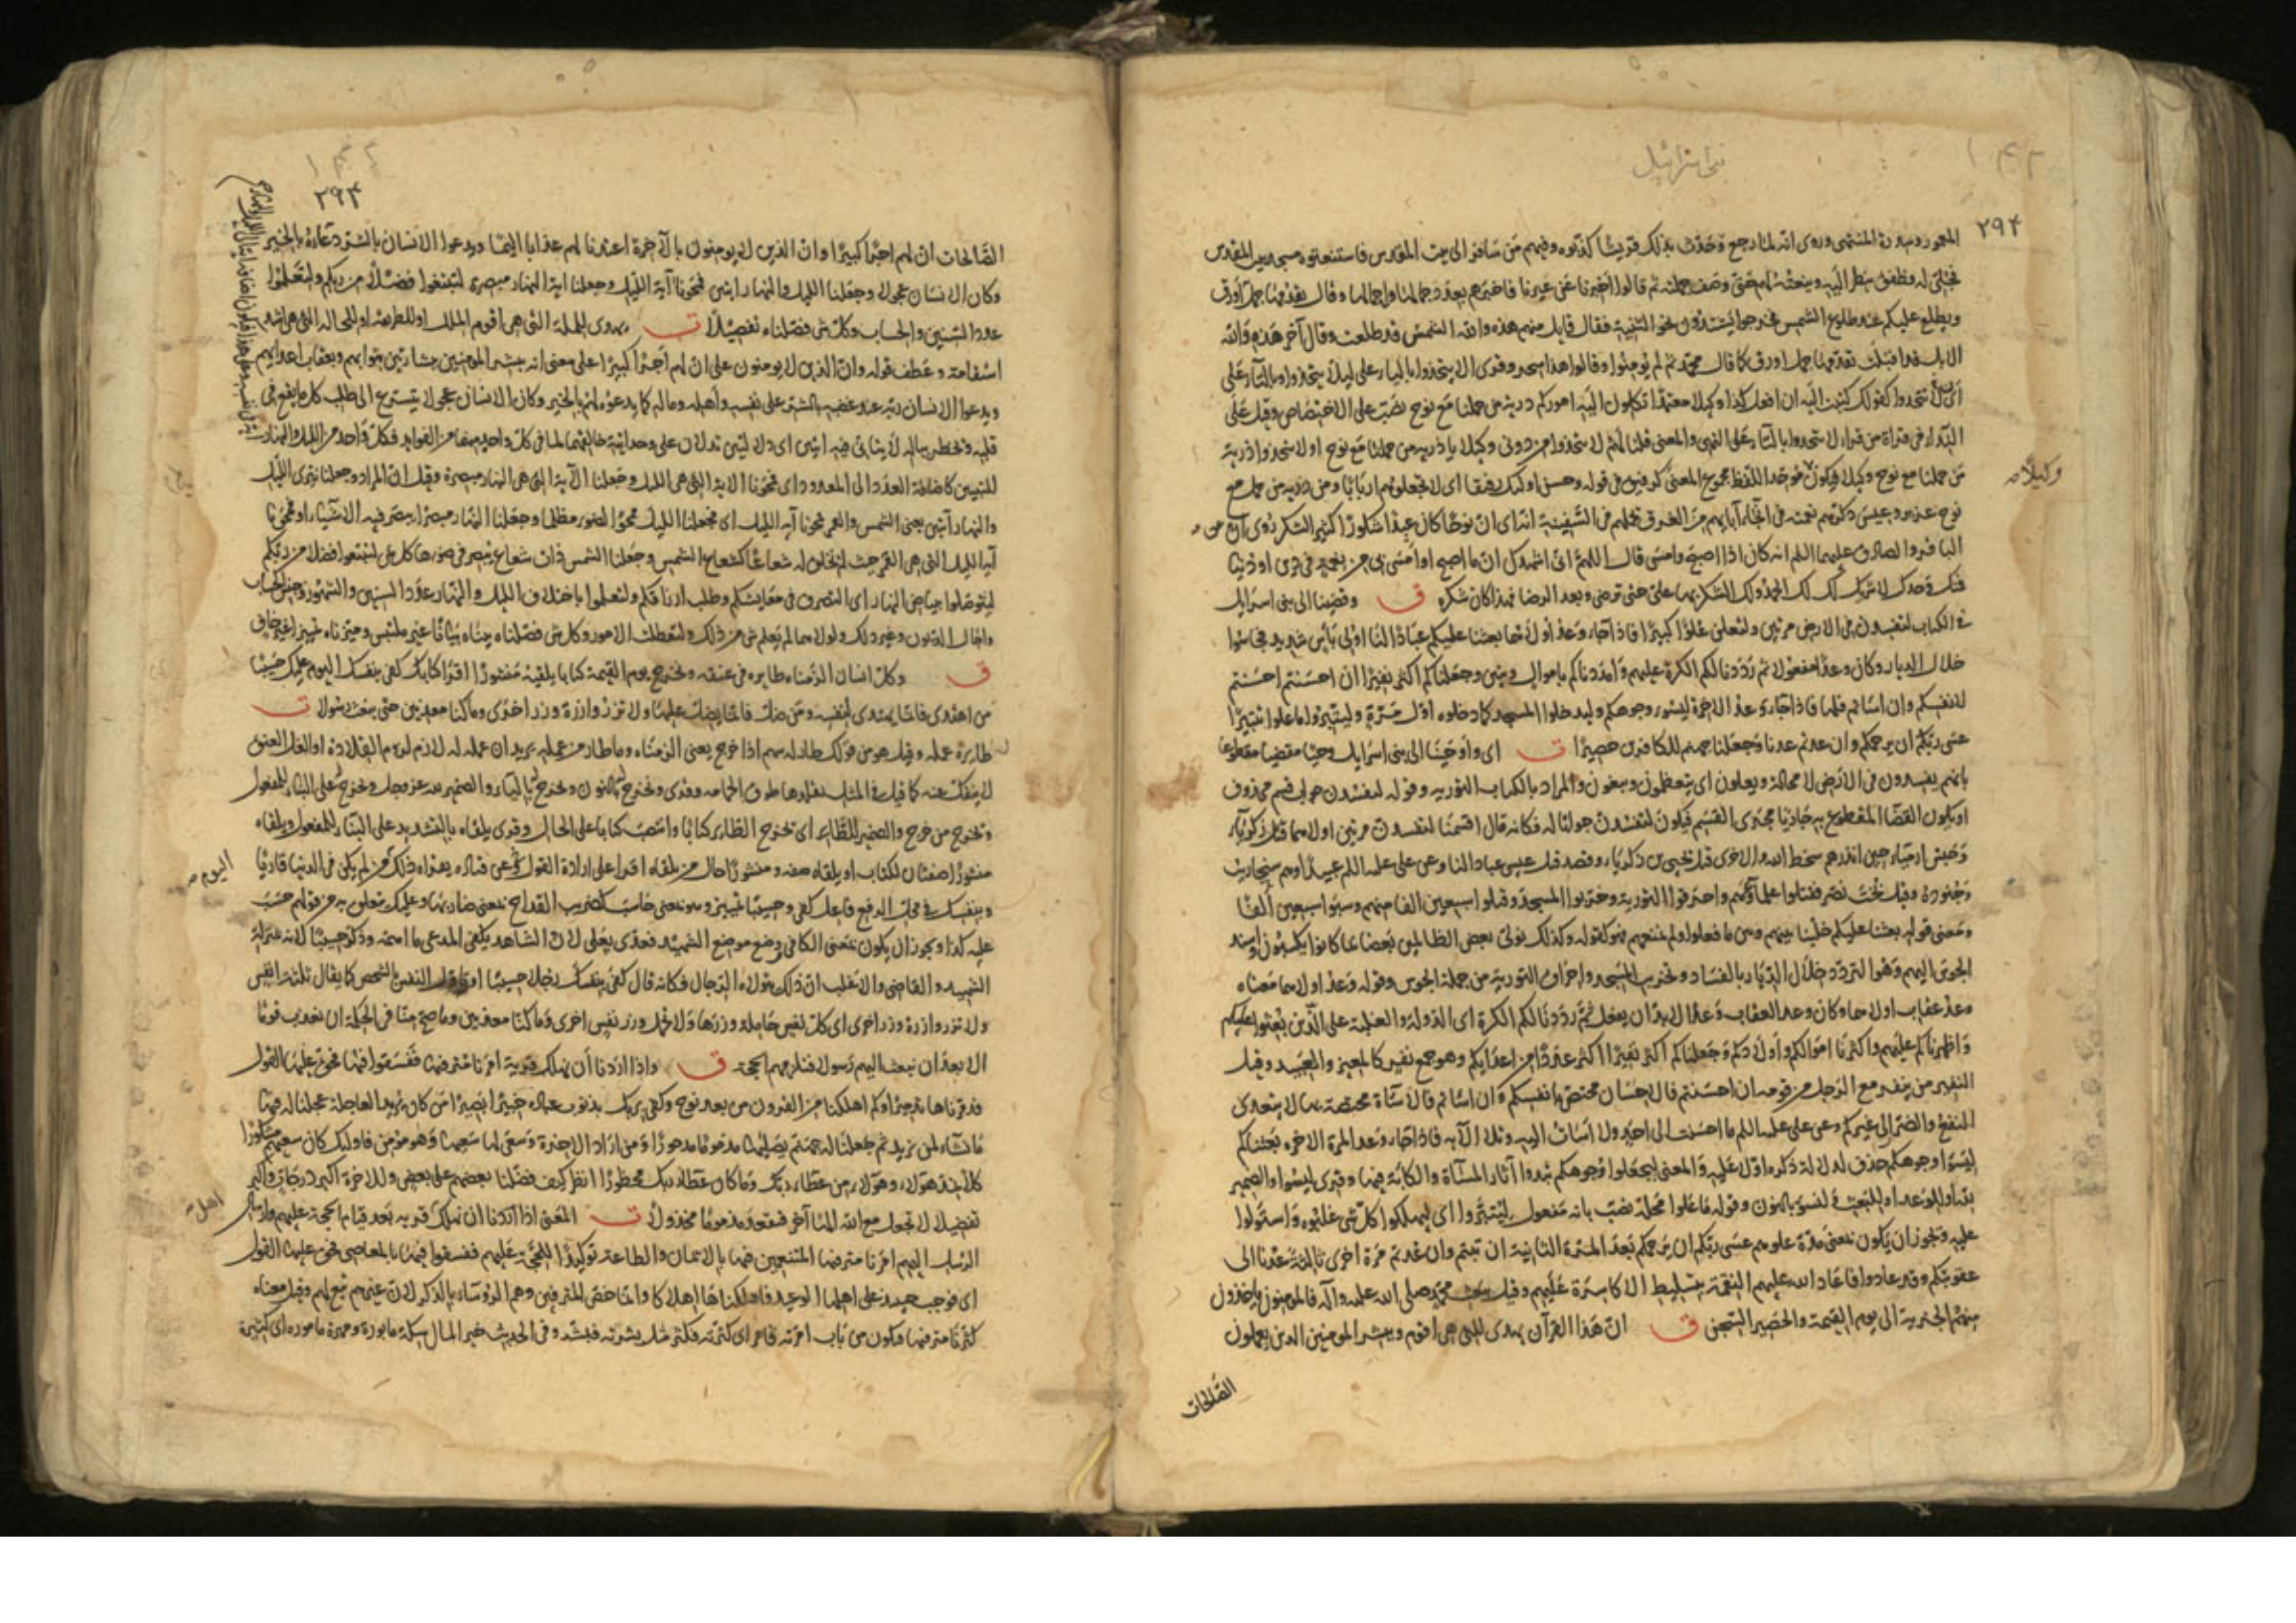 بنی اسرائیل
۲۹۴
المعمور وسدرة المنتهى وروى انه لما رجع وحدث بذلك قريشا كذبوه وفيهم من سافر الى بيت المقدس فاستنعتوه مسجد بيت المقدس
فجلى له وطفق ينظر اليه وينعته لهم حتى وصف جملته ثم قالوا أخبرنا عن عيرنا فاخبرهم بعدد جمالها واحمالها وقال يقدمها جمل اورق
ويطلع عليكم عند طلوع الشمس فخرجوا يشتدون نحو الثنية فقال قايل منهم هذه والله الشمس قد طلعت وقال آخر هذه والله
الابل قد اقبلت يقدمها جمل اورق كما قال محمد ثم لم يؤمنوا وقالوا هذا سحر وقرى الا يتخذوا بالياء على ليلا يتخذوا وبالتاء على
اى لا تتخذوا كقولك كتبت اليه ان افعل كذا وكيلا معتمدا تكلون اليه اموركم ذرية من حملنا مع نوح نصب على الاختصاص وقيل على
النداء فى قراة من قرا لا تتخذوا بالتاء على النهى والمعنى قلنا لهم لا تتخذوا من دونى وكيلا يا ذرية من حملنا مع نوح او لا تتخذوا ذرية
من حملنا مع نوح وكيلا فيكون موحد اللفظ مجموع المعنى كرفيق فى قوله وحسن اولئك رفيقا اى لا تجعلوهم اربابا ومن ذرية من حمل مع
وكيلا
نوح عزير وعيسى ذكرهم نعمته فى انجاء آبايهم من الغرق بحملهم فى السفينة انه اى ان نوحا كان عبدا شكورا كثير الشكر روى عن
الباقر والصادق عليهما السلم انه كان اذا اصبح وامسى قال اللهم انى اشهدك ان ما اصبح او امسى بى من نعمة فى دين او دنيا
فمنك وحدك لا شريك لك لك الحمد ولك الشكر بها على حتى ترضى وبعد الرضا فهذا كان شكره ق وقضينا الى بنى اسرايل
فى الكتاب لتفسدن فى الارض مرتين ولتعلن علوا كبيرا فاذا جاء وعد أولاهما بعثنا عليكم عبادا لنا اولى بأس شديد فجاسوا
خلال الديار وكان وعدا مفعولا ثم رددنا لكم الكرة عليهم وامددناكم باموال وبنين وجعلناكم اكثر نفيرا ان احسنتم احسنتم
لانفسكم وان اساتم فلها فاذا جاء وعد الاخرة ليسوءوا وجوهكم وليدخلوا المسجد كما دخلوه اول مرة وليتبروا ما علوا تتبيرا
عسى ربكم ان يرحمكم وان عدتم عدنا وجعلنا جهنم للكافرين حصيرا ت اى واوحينا الى بنى اسرايل وحيا مقضيا مقطوعا
بانهم يفسدون فى الارض لا محالة ويعلون اى يتعظمون ويبغون والمراد بالكتاب التورية وقوله لتفسدن جواب قسم محذوف
او يكون القضا المقطوع به جاريا مجرى القسم فيكون لتفسدن جوابا له فكانه قال اقسمنا لتفسدن مرتين اولاهما قتل زكريا
وحبس ارمياء حين انذرهم سخط الله والاخرى قتل يحيى بن زكرياء وقصد قتل عيسى عبادا لنا وعن على عليه السلم عبيدا وهم سنحاريب
وجنوده وقيل بخت نصر فقتلوا علماءهم واحرقوا التورية وخربوا المسجد وقتلوا سبعين الفا منهم وسبوا سبعين الفا
ومعنى قوله بعثنا عليكم خلينا بينهم وبين ما فعلوا ولم نمنعهم فهو كقوله وكذلك نولى بعض الظالمين بعضا بما كانوا يكسبون واسند
الجوس اليهم وهو التردد خلال الديار بالفساد وتخريب المسجد واحراق التورية من جملة الجوس وقوله وعد اولاهما معناه
وعد عقاب اولاهما وكان وعد العقاب وعدا لا بد ان يفعل ثم رددنا لكم الكرة اى الدولة والغلبة على الذين بعثوا عليكم
واظهرناكم عليهم واكثرنا اموالكم واولادكم وجعلناكم اكثر نفيرا اكثر عددا من اعدايكم وهو جمع نفير كالمعيز والعبيد وقيل
النفير من ينفر مع الرجل من قومه ان احسنتم فالاحسان مختص بانفسكم وان اساتم فالاساة مختصة بها لا يتعدى
النفع والضر الى غيركم وعن على عليه السلم ما احسنت الى احد ولا اسات اليه وتلا الآية فاذا جاء وعد المرة الاخرة بعثناكم
ليسوءوا وجوهكم حذف لدلالة ذكره اولا عليه والمعنى ليجعلوا وجوهكم تبدوا آثار المساة والكابة فيها وقرى ليسوا والضمير
لله او للوعد او للبعث ولنسوء بالنون وقوله ما علوا محله نصب بانه مفعول ليتبروا اى ليهلكوا كل شى غلبوه واستولوا
عليه ويجوز ان يكون بمعنى مدة علوهم عسى ربكم ان يرحمكم بعد المرة الثانية ان تبتم وان عدتم مرة اخرى ثالثة عدنا الى
عقوبتكم وقد عادوا فاعاد الله عليهم النقمة بتسليط الاكاسرة عليهم وقيل ببعث محمد صلى الله عليه وآله فالمومنون ياخذون
منهم الجزية الى يوم القيمة والحصير السجن ق ان هذا القرآن يهدى للتى هى اقوم ويبشر المومنين الذين يعملون
الصالحات
۲۹۴
الصالحات ان لهم اجرا كبيرا وان الذين لا يومنون بالآخرة اعتدنا لهم عذابا اليما ويدعوا الانسان بالشر دعاءه بالخير
وكان الانسان عجولا وجعلنا الليل والنهار آيتين فمحونا آية الليل وجعلنا آية النهار مبصرة لتبتغوا فضلا من ربكم ولتعلموا
عدد السنين والحساب وكل شى فصلناه تفصيلا ت يهدى للملة التى هى اقوم الملل او للطريقة او للحالة التى هى اشد
استقامة وعطف قوله وان الذين لا يومنون على ان لهم اجرا كبيرا على معنى انه يبشر المومنين ببشارتين بثوابهم وبعقاب اعدايهم
ويدعوا الانسان ربه عند غضبه بالشر على نفسه وأهله وماله كما يدعوه لهم بالخير وكان الانسان عجولا يتسرع الى طلب كل ما يقع فى
قلبه ويخطر بباله لا يتأنى فيه آيتين اى دلالتين تدلان على وحدانية خالقهما لما فى كل واحد منهما من الفوايد فكل واحد من الليل والنهار
للتبيين كاضافة العدد الى المعدود اى فمحونا الآية التى هى الليل وجعلنا الآية التى هى النهار مبصرة وقيل ان المراد وجعلنا نيرى الليل
والنهار آيتين يعنى الشمس والقمر فمحونا آية الليل اى فجعلنا الليل ممحو الضوء مظلما وجعلنا النهار مبصرا يبصر فيه الاشياء او فمحونا
آية الليل التى هى القمر حيث لم نخلق له شعاعا كشعاع الشمس وجعلنا الشمس ذات شعاع يبصر فى ضوءها كل شى لتبتغوا فضلا من ربكم
لتتوصلوا ببياض النهار اى التصرف فى معايشكم وطلب ارزاقكم ولتعلموا باختلاف الليل والنهار عدد السنين والشهور وجنس الحساب
وآجال الديون وغير ذلك ولولاهما لم يعلم شى من ذلك ولتعطلت الامور وكل شى فصلناه بيناه بيانا غير ملتبس وميزناه تمييزا غير خاف
ق وكل انسان الزمناه طايره فى عنقه ونخرج له يوم القيمة كتابا يلقيه منشورا اقرا كتابك كفى بنفسك اليوم عليك حسيبا
من اهتدى فانما يهتدى لنفسه ومن ضل فانما يضل عليها ولا تزر وازرة وزر اخرى وما كنا معذبين حتى نبعث رسولا ت
طايره عمله وقيل هو من قولك طار له سهم اذا خرج يعنى الزمناه وما طار من عمله يريد ان عمله له لازم لزوم القلادة او الغل العنق
لا ينفك عنه كما قيل فى المثل تقلدها طوق الحمامة وقرى ونخرج بالنون ويخرج بالياء والضمير لله عز وجل ويخرج على البناء للمفعول
ويخرج من خرج والضمير للطاير اى يخرج الطاير كتابا وانتصب كتابا على الحال وقرى يلقاه بالتشديد على البناء للمفعول ويلقاه
منشورا صفتان للكتاب او يلقاه صفة ومنشورا حال من يلقاه اقرا على ارادة القول وعن قتاده يقراه ذلك من لم يكن فى الدنيا قاريا
اليوم
وبنفسك فى محل الرفع فاعل كفى وحسيبا تمييز وهو بمعنى حاسب كضريب القداح بمعنى ضاربها وعليك متعلق به من قولهم حسب
عليه كذا ويجوز ان يكون بمعنى الكافى وضع موضع الشهيد فعدى بعلى لان الشاهد يكفى المدعى ما اهمه وذكر حسيبا لانه بمنزلة
الشهيد والقاضى والاغلب ان ذلك يتولاه الرجال فكانه قال كفى بنفسك رجلا حسيبا او تاول النفس بالشخص كما يقال ثلثة انفس
ولا تزر وازرة وزر اخرى اى كل نفس حاملة وزرها ولا تحمل وزر نفس اخرى وما كنا معذبين وما صح منا فى الحكمة ان نعذب قوما
الا بعد ان نبعث اليهم رسولا فتلزمهم الحجة ق واذا اردنا أن نهلك قرية امرنا مترفيها ففسقوا فيها فحق عليها القول
فدمرناها تدميرا وكم اهلكنا من القرون من بعد نوح وكفى بربك بذنوب عباده خبيرا بصيرا من كان يريد العاجلة عجلنا له فيها
ما نشاء لمن نريد ثم جعلنا له جهنم يصليها مذموما مدحورا ومن اراد الاخرة وسعى لها سعيها وهو مؤمن فاولئك كان سعيهم مشكورا
كلا نمد هولاء وهولاء من عطاء ربك وما كان عطاء ربك محظورا انظر كيف فضلنا بعضهم على بعض وللاخرة اكبر درجات واكبر
تفضيلا لا تجعل مع الله الها آخر فتقعد مذموما مخذولا ت المعنى اذا اردنا ان نهلك قرية بعد قيام الحجة عليهم وارسال
اهل
الرسل اليهم امرنا مترفيها المتنعمين فيها بالايمان والطاعة توكيدا للحجة عليهم ففسقوا فيها بالمعاصى فحق عليها القول
اى فوجب حينئذ على اهلها الوعيد فاهلكناها اهلاكا وانما خص المترفين وهم الرؤساء بالذكر لان غيرهم تبع لهم وقيل معناه
كثرنا مترفيها فيكون من باب امرته فامر اى كثرته فكثر مثل بشرته فبشر وفى الحديث خير المال سكة مابورة ومهرة مامورة اى كثيرة